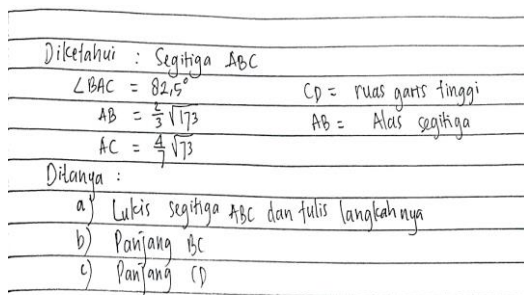 Diketahui : Segitiga ABC
∠BAC = 82,5°
CD = ruas garis tinggi
AB = 2/3 √173
AB = Alas segitiga
AC = 4/7 √73
Ditanya :
a) Lukis segitiga ABC dan tulis langkahnya
b) Panjang BC
c) Panjang CD